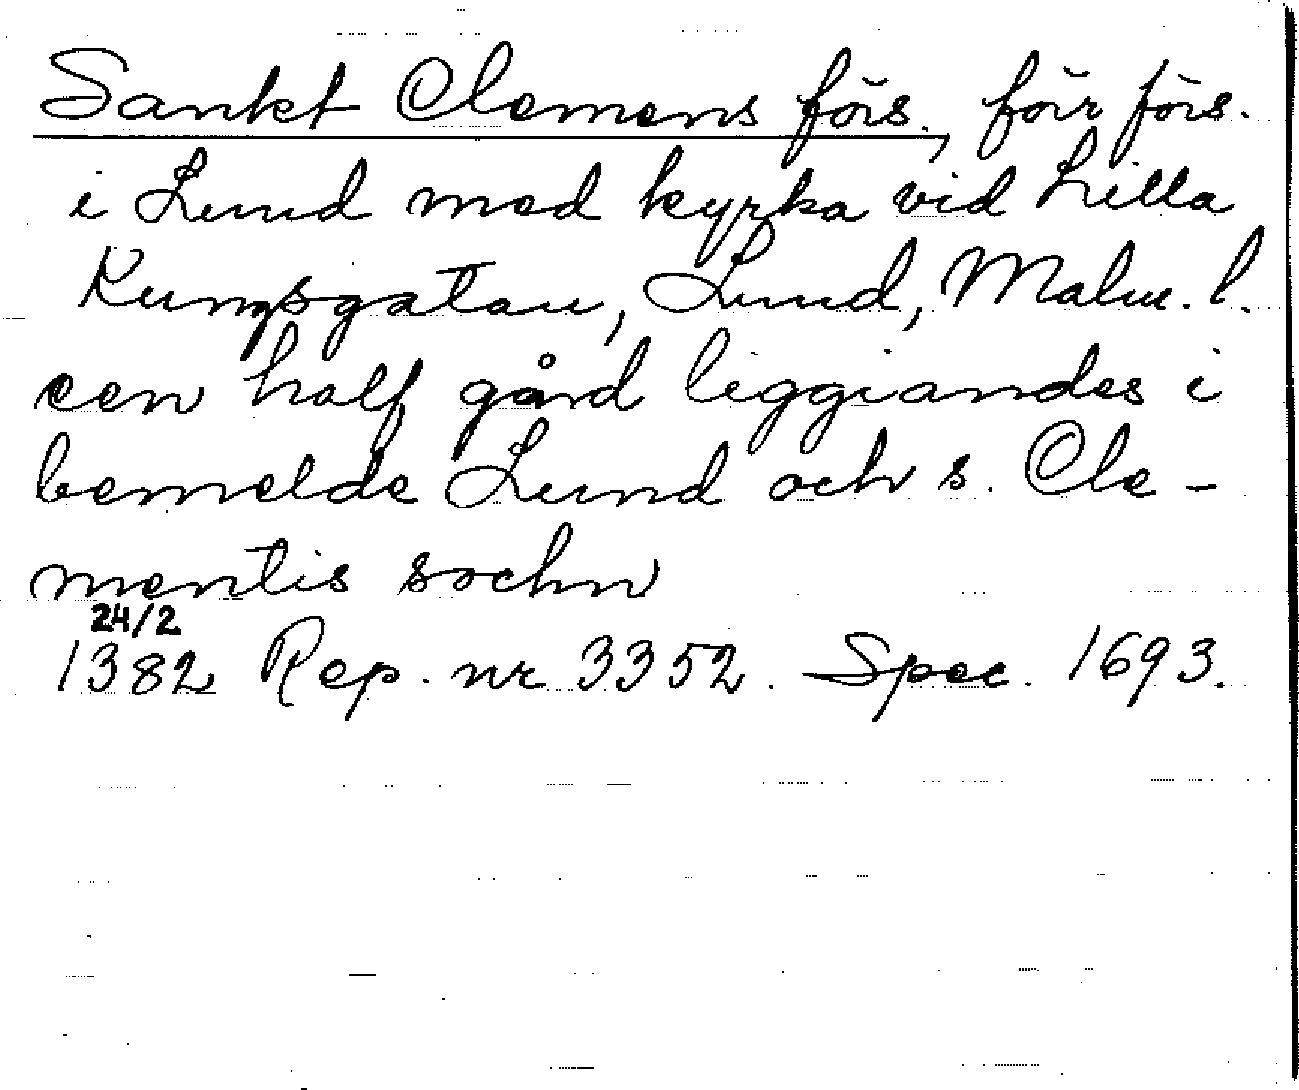 Sankt Clemens förs., förr förs.
i Lund med kyrka vid Lilla
Kungsgatan, Lund, Malm. l.
een half gård leggiandes i
bemelde Lund och s. Cle-
mentis sochn
24/2
1382 Rep. nr 3352. Spec. 1693.